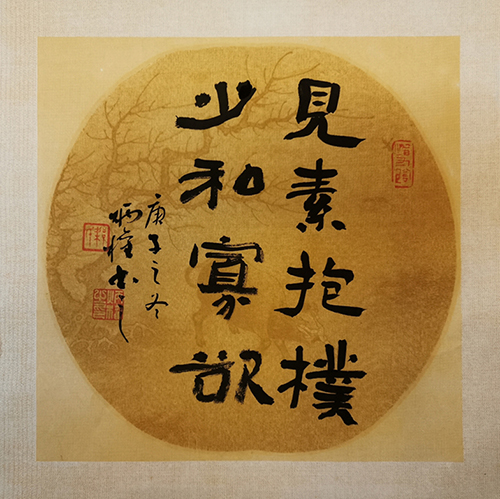 見素抱樸
少私寡欲
庚子之冬
炳書